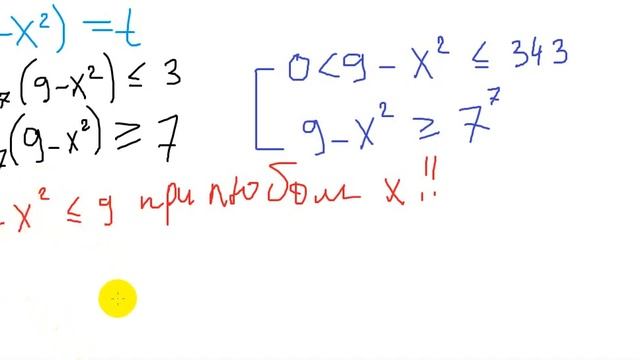 -x²) = t
₇(9-x²) ≤ 3
₇(9-x²) ≥ 7
0 < 9 - x² ≤ 343
9 - x² ≥ 7⁷
- x² ≤ 9 при любом x!!